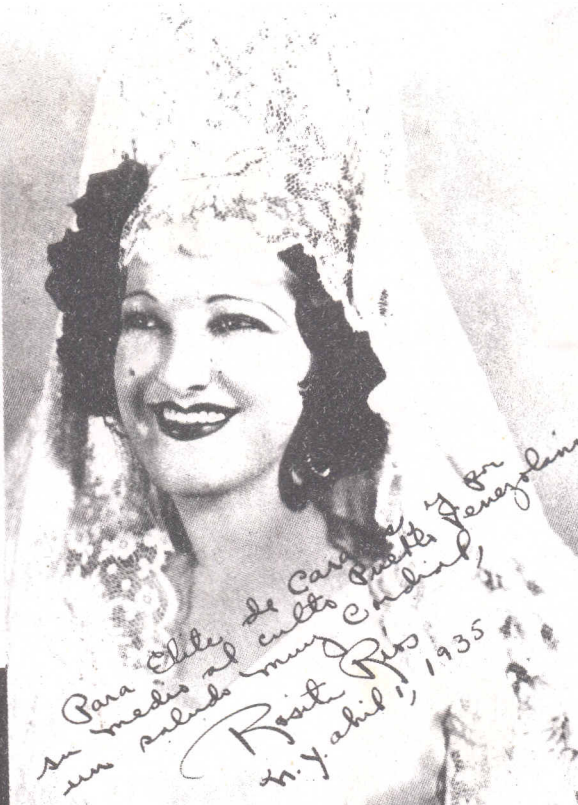 Para Elite, de Caracas, y por
su medio al culto Pueblo Venezolano
un saludo muy Cordial,
Rosita Rios
N. Y. abril 1, 1935